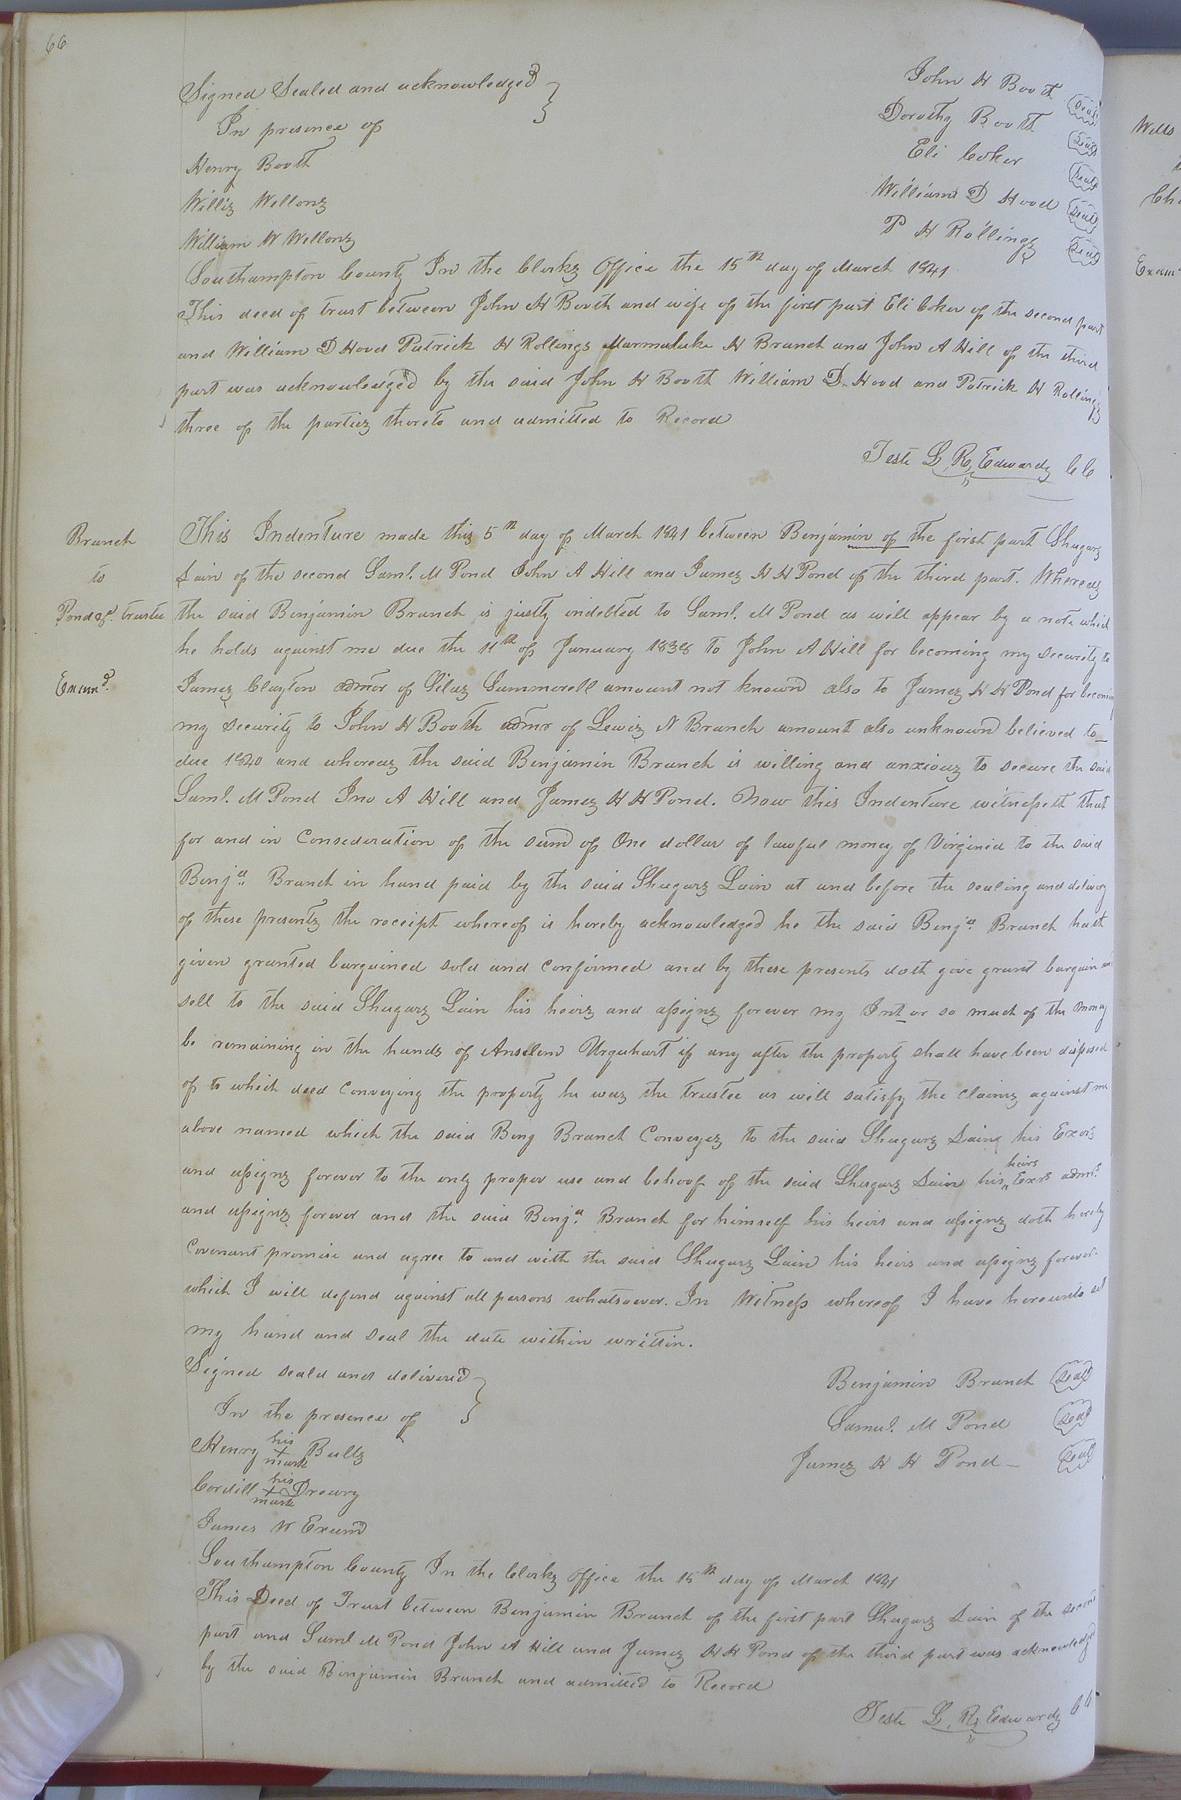 66
Signed Sealed and acknowledged
In presence of
Henry Booth
Willis Wellons
William W Wellons
John H Booth Seal
Dorothy Booth Seal
Eli Coker Seal
William D Hood Seal
P H Rollings Seal
Southampton County In the Clerks Office the 15th day of March 1841
This deed of trust between John H Booth and wife of the first part Eli Coker of the second part
and William D Hood Patrick H Rollings Marmaluke N Branch and John A Hill of the third
part was acknowledged by the said John H Booth William D. Hood and Patrick H Rollings
three of the parties thereto and admitted to Record
Teste L. R. Edwards CC
Branch
to
Pond &c. trustee
Examd.
This Indenture made this 5th day of March 1841 between Benjamin of the first part Shugars
Lain of the second Saml. M Pond John A Hill and James H H Pond of the third part. Whereas
the said Benjamin Branch is justly indebted to Saml. M Pond as will appear by a note which
he holds against me due the 11th of January 1838 to John A Hill for becoming my security to
James Clayton admor of Silas Summerell amount not known also to James H H Pond for becoming
my security to John H Booth admr of Lewis N Branch amount also unknown believed to
due 1840 and whereas the said Benjamin Branch is willing and anxious to secure the said
Saml. M Pond Jno A Hill and James H H Pond. Now this Indenture witnesseth that
for and in Consideration of the sum of One dollar of lawful money of Virginia to the said
Benja. Branch in hand paid by the said Shugars Lain at and before the sealing and delivery
of these presents the receipt whereof is hereby acknowledged he the said Benja. Branch hath
given granted bargained sold and confirmed and by these presents doth give grant bargain and
sell to the said Shugars Lain his heirs and assigns forever my Int or so much of the money
be remaining in the hands of Anselem Urquhart if any after the property shall have been disposed
of to which deed Conveying the property he was the trustee as will satisfy the claims against me
above named which the said Benj Branch Conveyes to the said Shugars Lain his Exors
and assigns forever to the only proper use and behoof of the said Shugars Lain his heirs Exrs adms
and assigns forever and the said Benja. Branch for himself his heirs and assigns doth hereby
Covenant promise and agree to and with the said Shugars Lain his heirs and assigns forever
which I will defend against all persons whatsoever. In Witness whereof I have hereunto set
my hand and seal the date within written.
Signed seald and delivered
In the presence of
Henry his + mark Butts
Cordill his + mark Drewry
James W Exum
Benjamin Branch Seal
Samul. M Pond Seal
James H H Pond Seal
Southampton County In the Clerks Office the 15th day of March 1841
This Deed of Trust between Benjamin Branch of the first part Shugars Lain of the second
part and Saml M Pond John A Hill and James H H Pond of the third part was acknowledged
by the said Benjamin Branch and admitted to Record
Teste L. R. Edwards CC
Wills
Exam